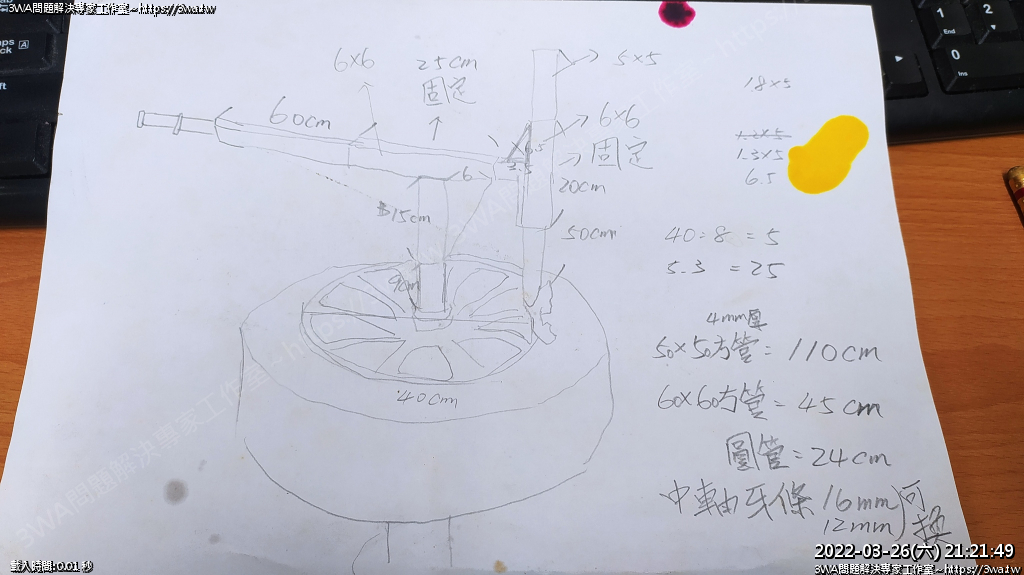 3WA問題解決專家工作室~https://3wa.tw
6×6
25cm
固定
5×5
60cm
6×6
固定
6.5
3.5
6
20cm
15cm
50cm
9cm
40cm
18×5
1.3×5
6.5
40÷8=5
5.3 =25
4mm厚
50×50方管=110cm
60×60方管=45cm
圓管=24cm
中軸牙條 16mm
12mm
可換
1
End
2
0
Ins
載入時間:0.01 秒
2022-03-26(六) 21:21:49
3WA問題解決專家工作室~https://3wa.tw